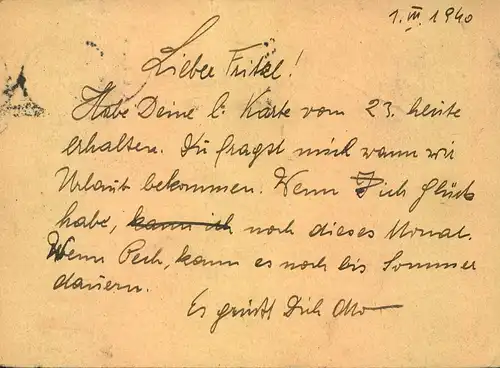 1. III. 1940
Lieber Fritzl!
Habe Deine l. Karte vom 23. heute
erhalten. Du fragst mich wann wir
Urlaub bekommen. Wenn ich Glück
habe, kann ich noch dieses Monat.
Wenn Pech, kann es noch bis Sommer
dauern.
Es grüßt Dich Otto